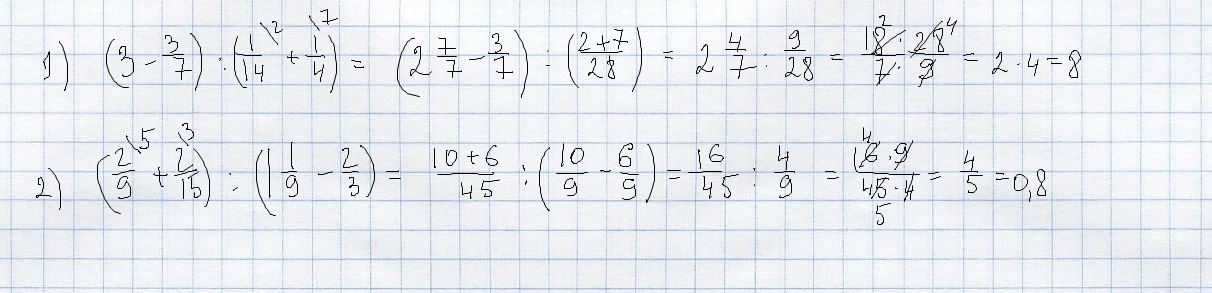 1) (3 - 3/7) : (1/14 \2 + 1/4 \7) = (2 7/7 - 3/7) : ((2+7)/28) = 2 4/7 : 9/28 = (18 2 · 28 4)/(7 · 9) = 2 · 4 = 8
2) (2/9 \5 + 2/15 \3) : (1 1/9 - 2/3) = (10+6)/45 : (10/9 - 6/9) = 16/45 : 4/9 = (16 4 · 9)/(45 5 · 4) = 4/5 = 0,8